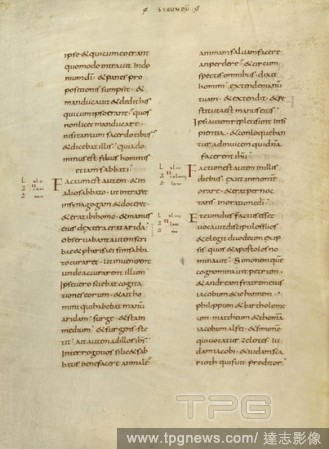 SECUNDU
ipse & qui cum eo erant
quomodo intrauit indo
mum di & panes pro
positionis sumpsit &
manducauit & dedit his
qui cum ipso erant quos
non licet manducare
nisi tantum sacerdotibus
& dicebat illis quia do
minus est filius hominis
etiam sabbati
Factum est autem & in
alio sabbato ut intraret
in synagogam & doceret
& erat ibi homo & manus
eius dextera erat arida
Obseruabant autem scri
bae & pharisei si in sabba
to curaret ut inuenirent
unde accusarent illum
Ipse uero sciebat cogita
tiones eorum & ait ho
mini qui habebat manu
aridam surge & sta in
medium & surgens ste
tit ait autem ad illos ihs
Interrogo uos si lic& sab
batis bene facere an male
animam saluam facere
an perdere & circum
spectis omnibus dixit
homini extende manum
tuam & extendit & resti
tuta est manus eius
Ipsi autem repleti sunt insi
pientia & conloqueban
tur adinuicem quidnam
facerent ihu
Factum est autem in illis
diebus exiit in montem
orare & erat pernoc
tans in oratione di
Et cum dies factus esset
uocauit discipulos suos
& elegit duodecim ex ip
sis quos & apostolos no
minauit Simonem que
cognominauit petrum
& andream fratrem eius
iacobum & iohannem
philippum & bartholome
um mattheum & thoma
iacobum alfei & simone
qui uocatur zelotes iu
dam iacobi & iudam sca
rioth qui fuit proditor
TPG
www.tpgnews.com/ 達志影像